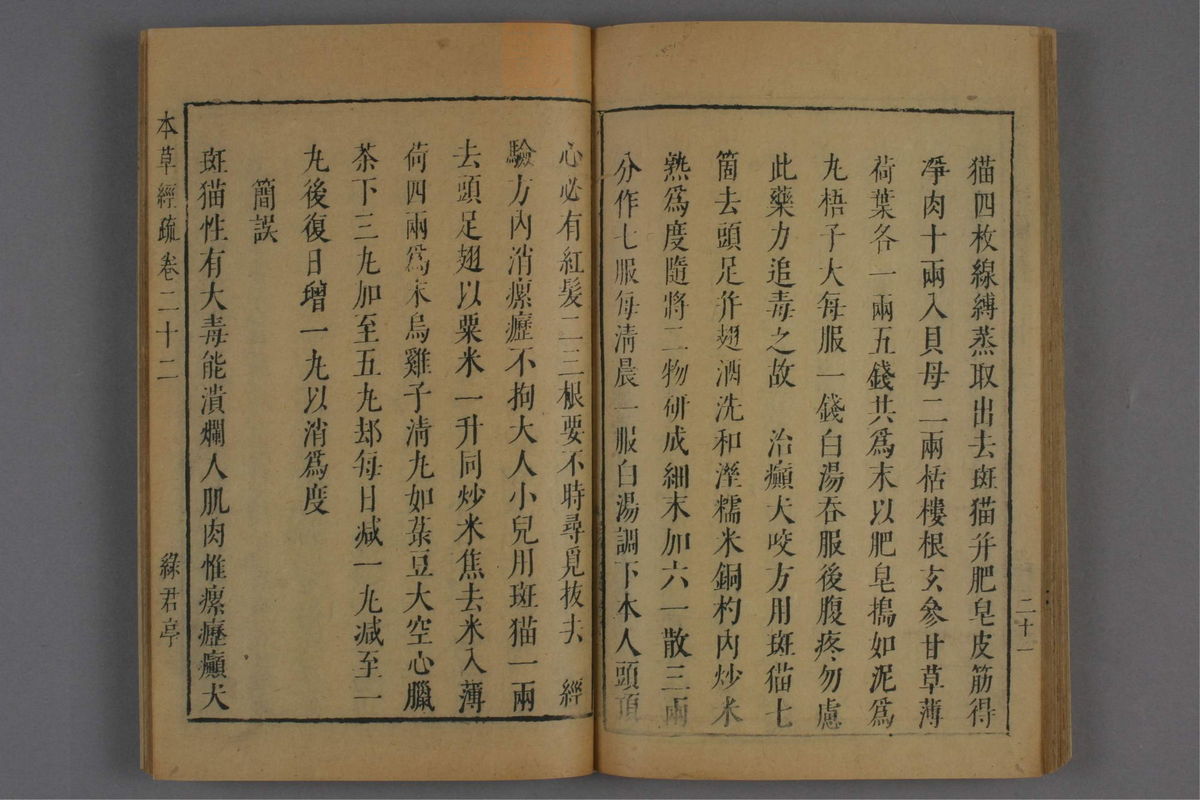 二十一
猫四枚線縛蒸取出去斑猫并肥皂皮筋得
淨肉十兩入貝母二兩栝樓根玄參甘草薄
荷葉各一兩五錢共爲末以肥皂搗如泥爲
丸梧子大每服一錢白湯吞服後腹疼勿慮
此藥力追毒之故　治癲犬咬方用斑猫七
箇去頭足并翅酒洗和溼糯米銅杓內炒米
熟爲度隨將二物研成細末加六一散三兩
分作七服每清晨一服白湯調下本人頭頂
心必有紅髮二三根要不時尋覓拔去　經
驗方內消瘰癧不拘大人小兒用斑猫一兩
去頭足翅以粟米一升同炒米焦去米入薄
荷四兩爲末烏雞子清丸如菉豆大空心臘
茶下三丸加至五丸却每日减一丸减至一
丸後復日增一丸以消爲度
簡誤
斑猫性有大毒能潰爛人肌肉惟瘰癧癲犬
本草經疏卷二十二
綠君亭